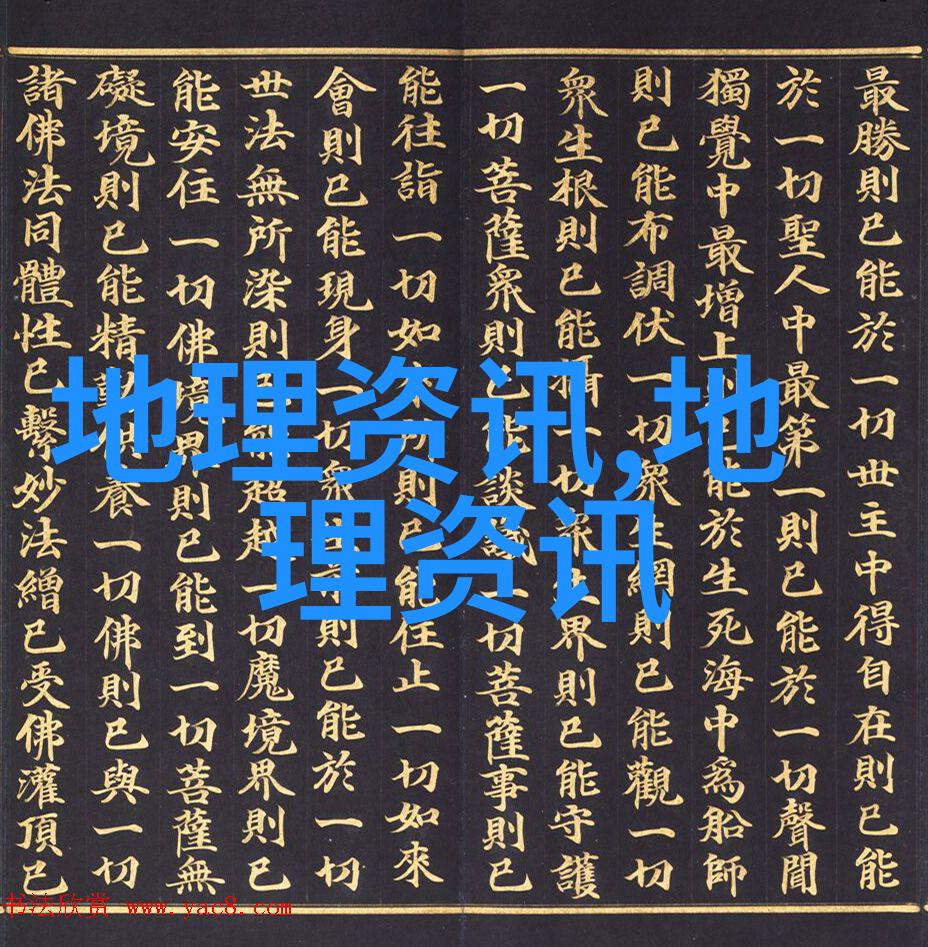 最勝則已能於一切世主中得自在則已能
於一切聖人中最第一則已能於一切聲聞
獨覺中最增上則已能於生死海中為船師
則已能布調伏一切眾生網則已能觀一切
眾生根則已能攝一切眾生界則已能守護
一切菩薩眾則已能談議一切菩薩事則已
能往詣一切如來所則已能住止一切如來
會則已能現身一切眾生前則已能於一切
世法無所染則已能超越一切魔境界則已
能安住一切佛境界則已能到一切菩薩無
礙境則已能精勤供養一切佛則已與一切
諸佛法同體性已繫妙法繒已受佛灌頂已
地理资讯,地
理资讯
书法欣赏 www.yac8.com